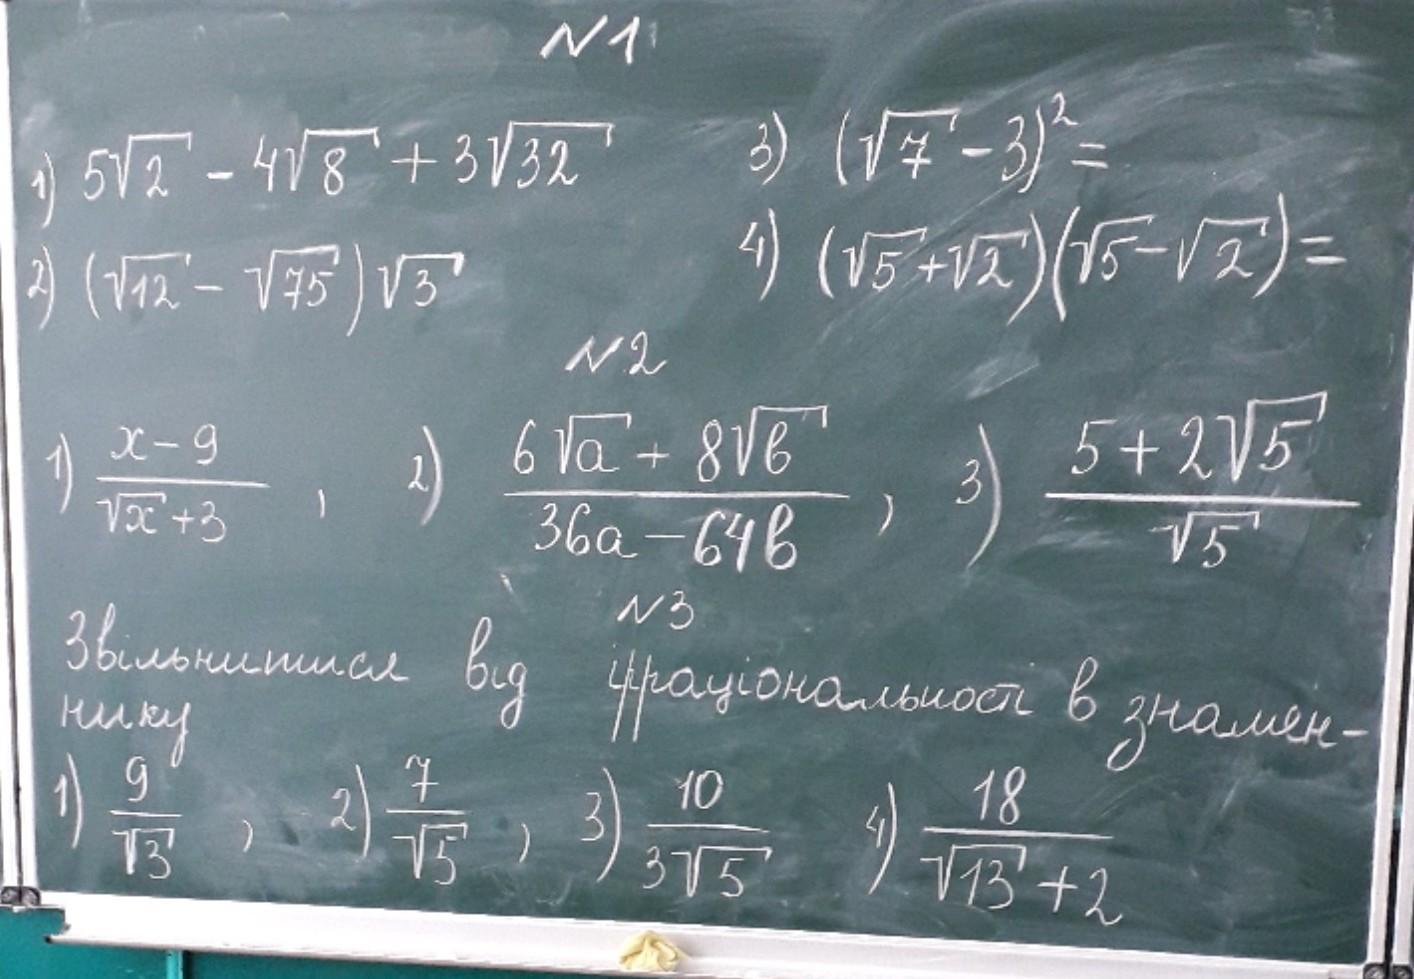 N1
1) 5√2 - 4√8 + 3√32
2) (√12 - √75)√3
3) (√7 - 3)² =
4) (√5 + √2)(√5 - √2) =
N2
1) (x - 9)/(√x + 3) , 2) (6√a + 8√b)/(36a - 64b) , 3) (5 + 2√5)/√5
N3
Звільнитися від ірраціональності в знамен-
нику
1) 9/√3 , 2) 7/√5 , 3) 10/(3√5) 4) 18/(√13 + 2)